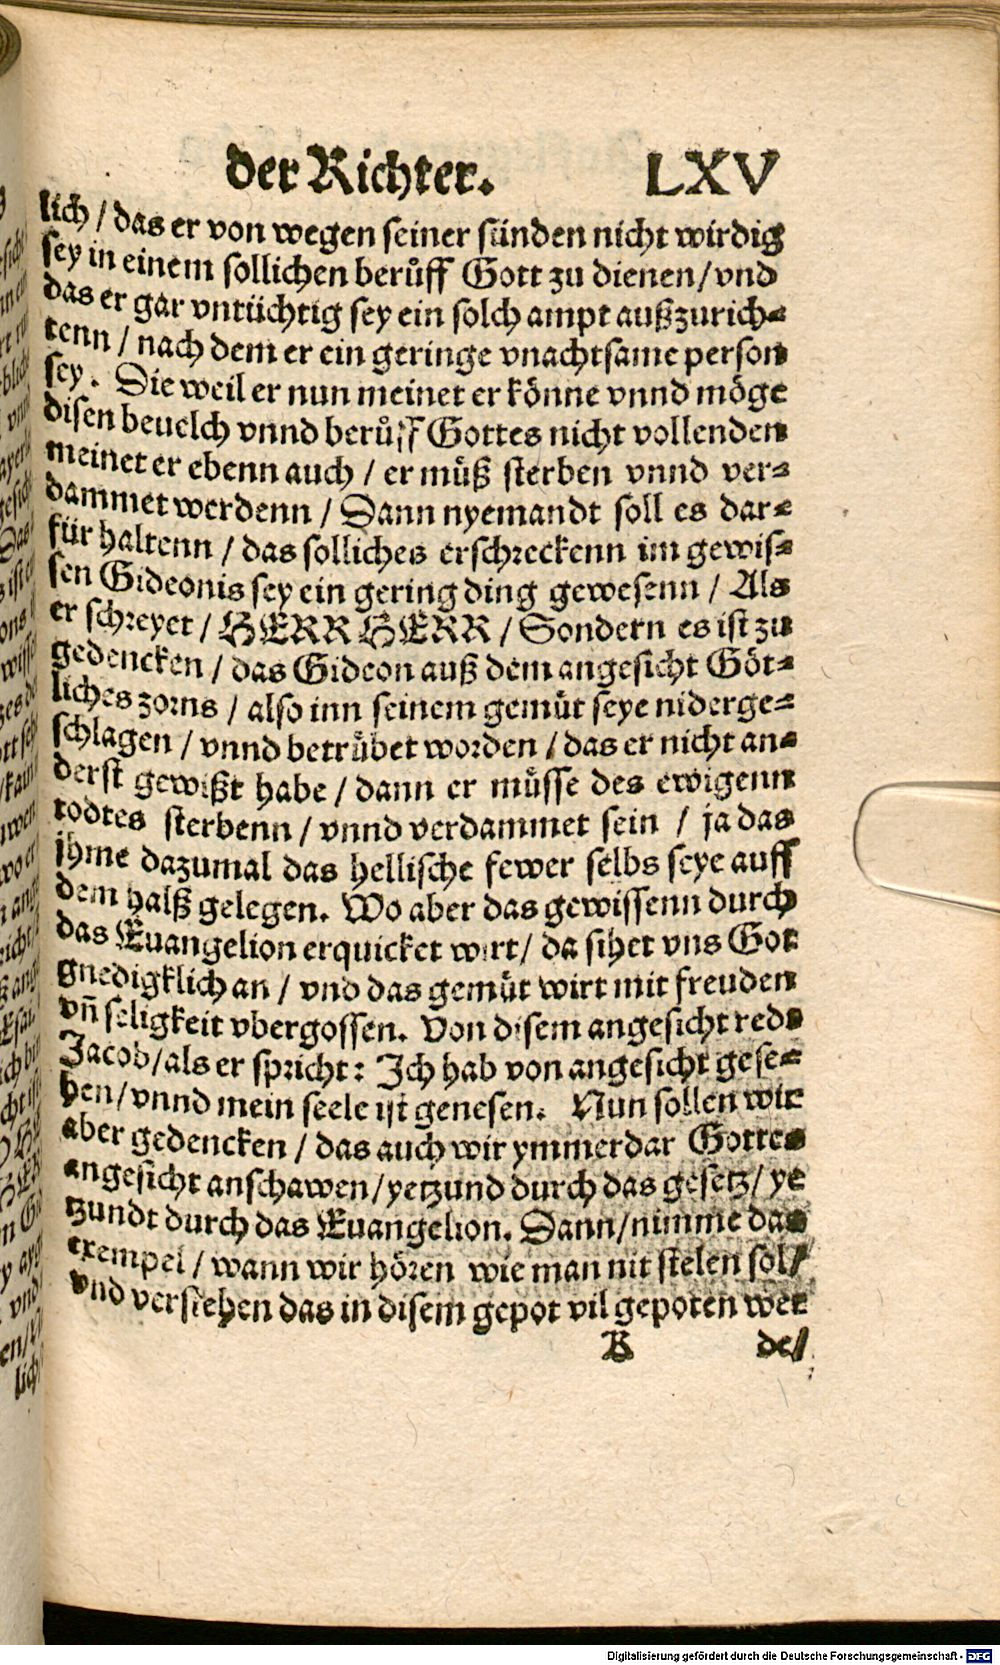 der Richter. LXV
lich / das er von wegen seiner sünden nicht wirdig
sey in einem sollichen berůff Gott zu dienen / vnd
das er gar vntüchtig sey ein solch ampt außzurich⸗
tenn / nach dem er ein geringe vnachtsame person
sey. Die weil er nun meinet er könne vnnd möge
disen beuelch vnnd berůff Gottes nicht vollenden
meinet er ebenn auch / er müß sterben vnnd ver⸗
dammet werdenn / Dann nyemandt soll es dar⸗
für haltenn / das solliches erschreckenn im gewis⸗
sen Gideonis sey ein gering ding gewesenn / Als
er schreyet / HERR HERR / Sondern es ist zu
gedencken / das Gideon auß dem angesicht Göt⸗
liches zorns / also inn seinem gemüt seye niderge⸗
schlagen / vnnd betrübet worden / das er nicht an⸗
derst gewißt habe / dann er müsse des ewigenn
todtes sterbenn / vnnd verdammet sein / ja das
jhme dazumal das hellische fewer selbs seye auff
dem halß gelegen. Wo aber das gewissenn durch
das Euangelion erquicket wirt / da sihet vns Got
gnedigklich an / vnd das gemüt wirt mit freuden
vñ seligkeit vbergossen. Von disem angesicht redt
Jacob / als er spricht: Ich hab von angesicht gese⸗
hen / vnnd mein seele ist genesen. Nun sollen wir
aber gedencken / das auch wir ymmerdar Gottes
angesicht anschawen / yetzund durch das gesetz / ye
tzundt durch das Euangelion. Dann / nimme das
exempel / wann wir hören wie man nit stelen sol /
vnd verstehen das in disem gepot vil gepoten wer
B de /
Digitalisierung gefördert durch die Deutsche Forschungsgemeinschaft - DFG